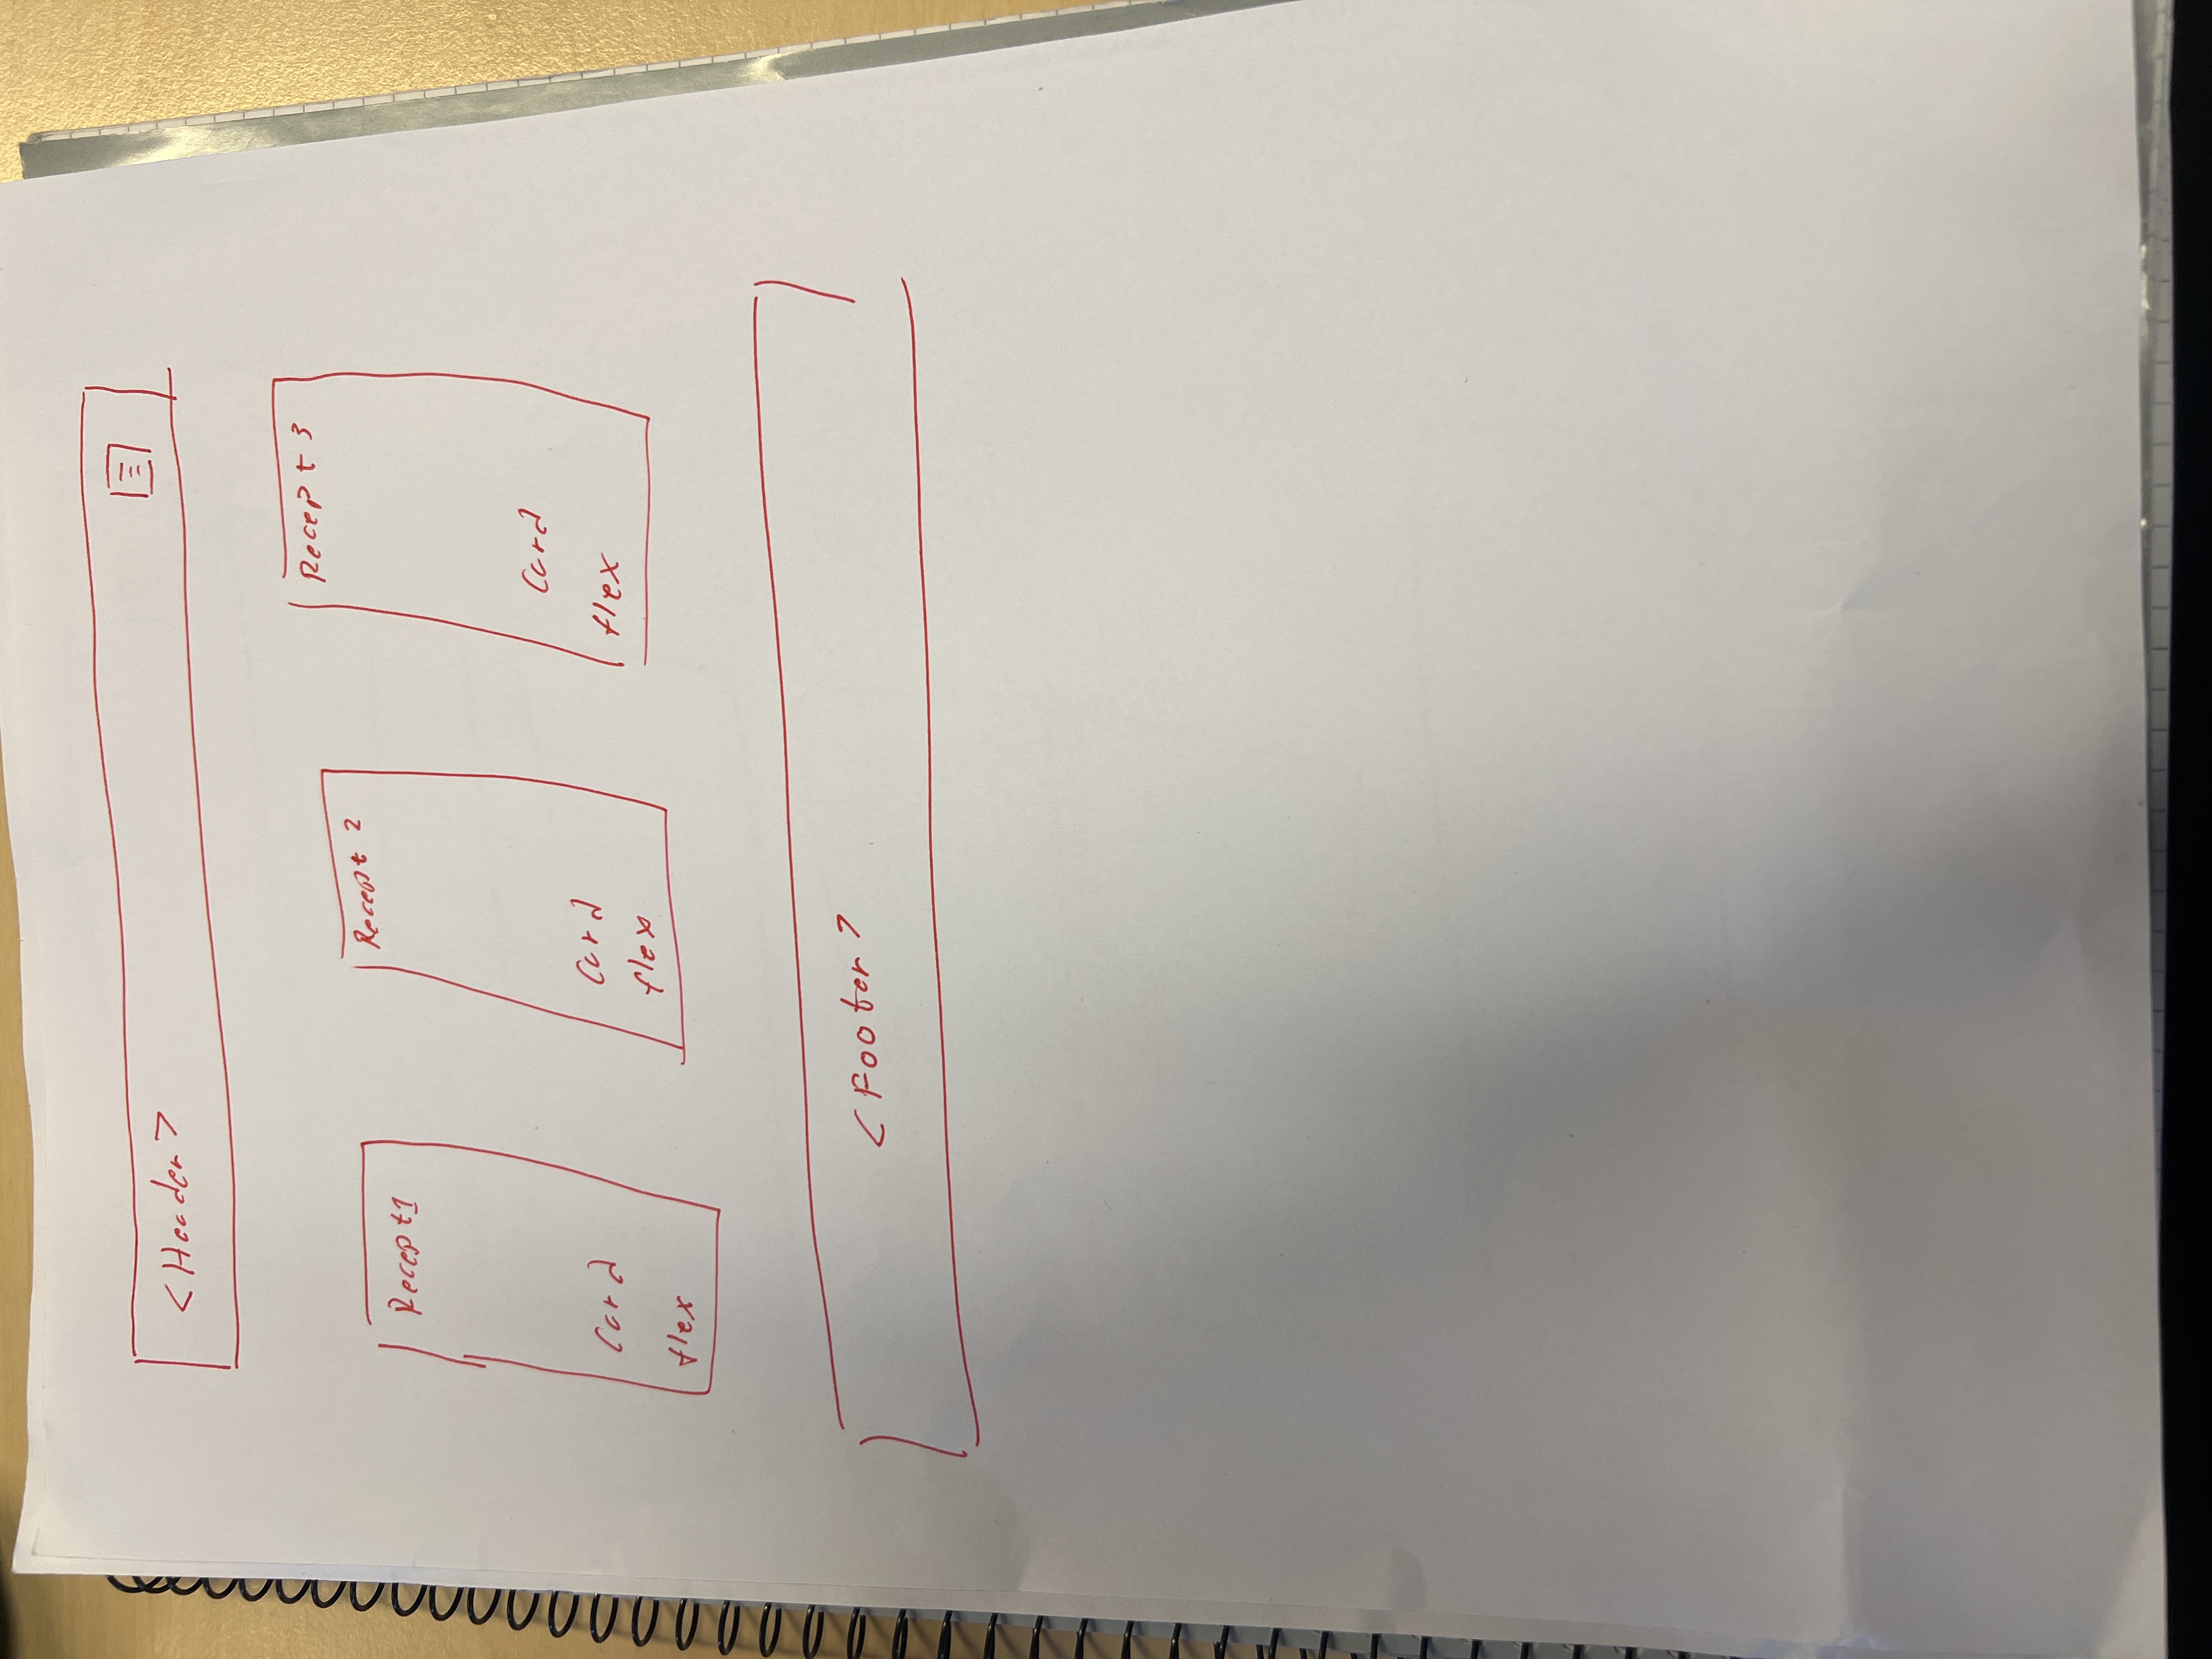 <Header>
Recept1
Card
flex
Recept 2
Card
flex
Recept 3
Card
flex
<Footer>